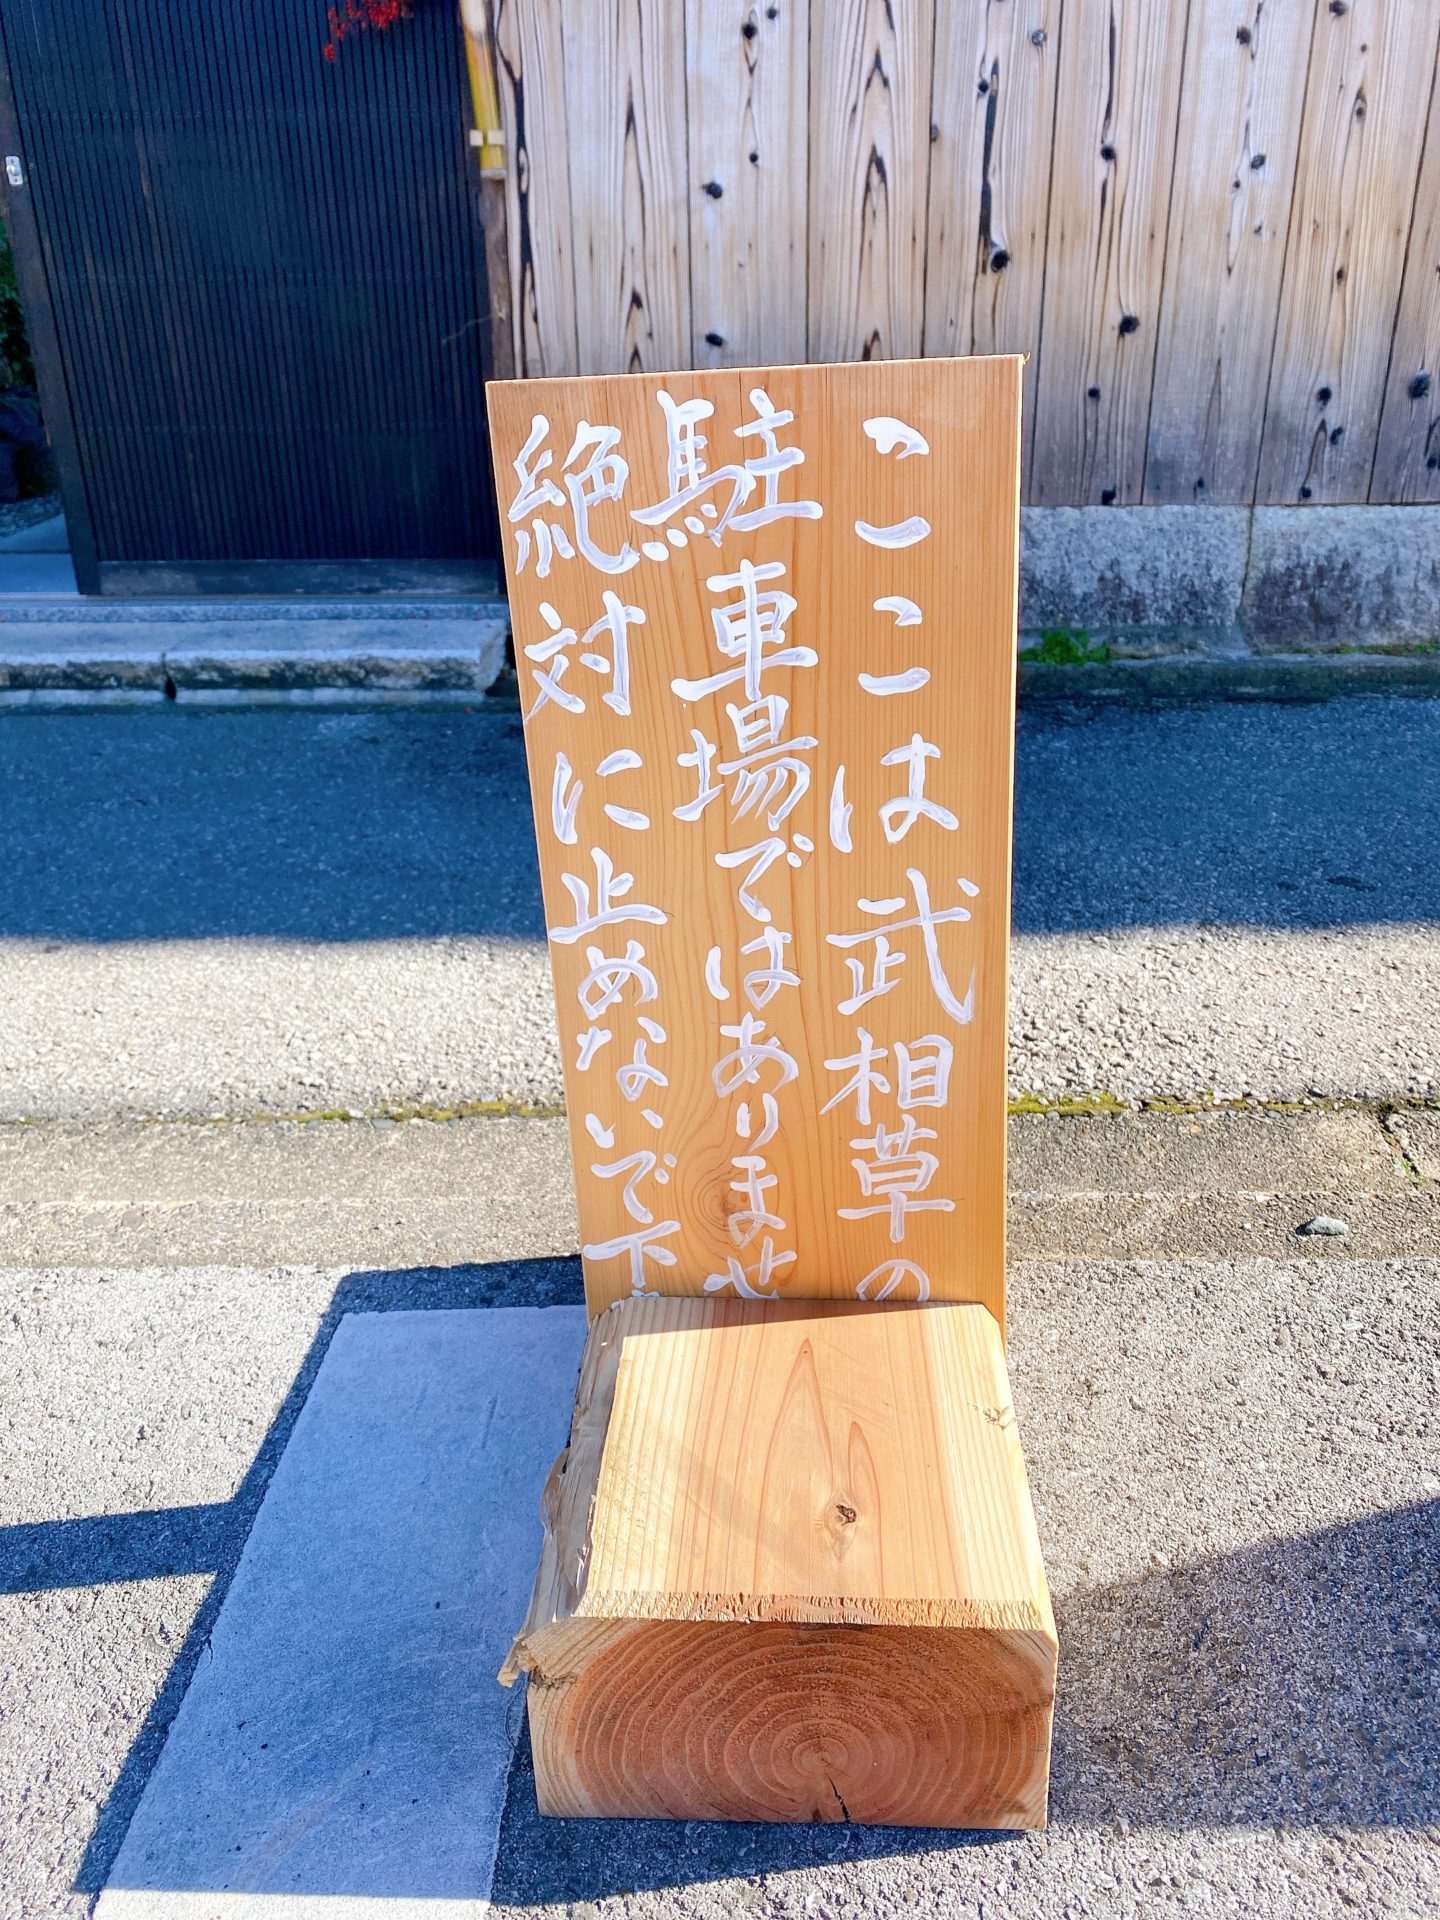 ここは武相草の
駐車場ではありませ
絶対に止めないで下